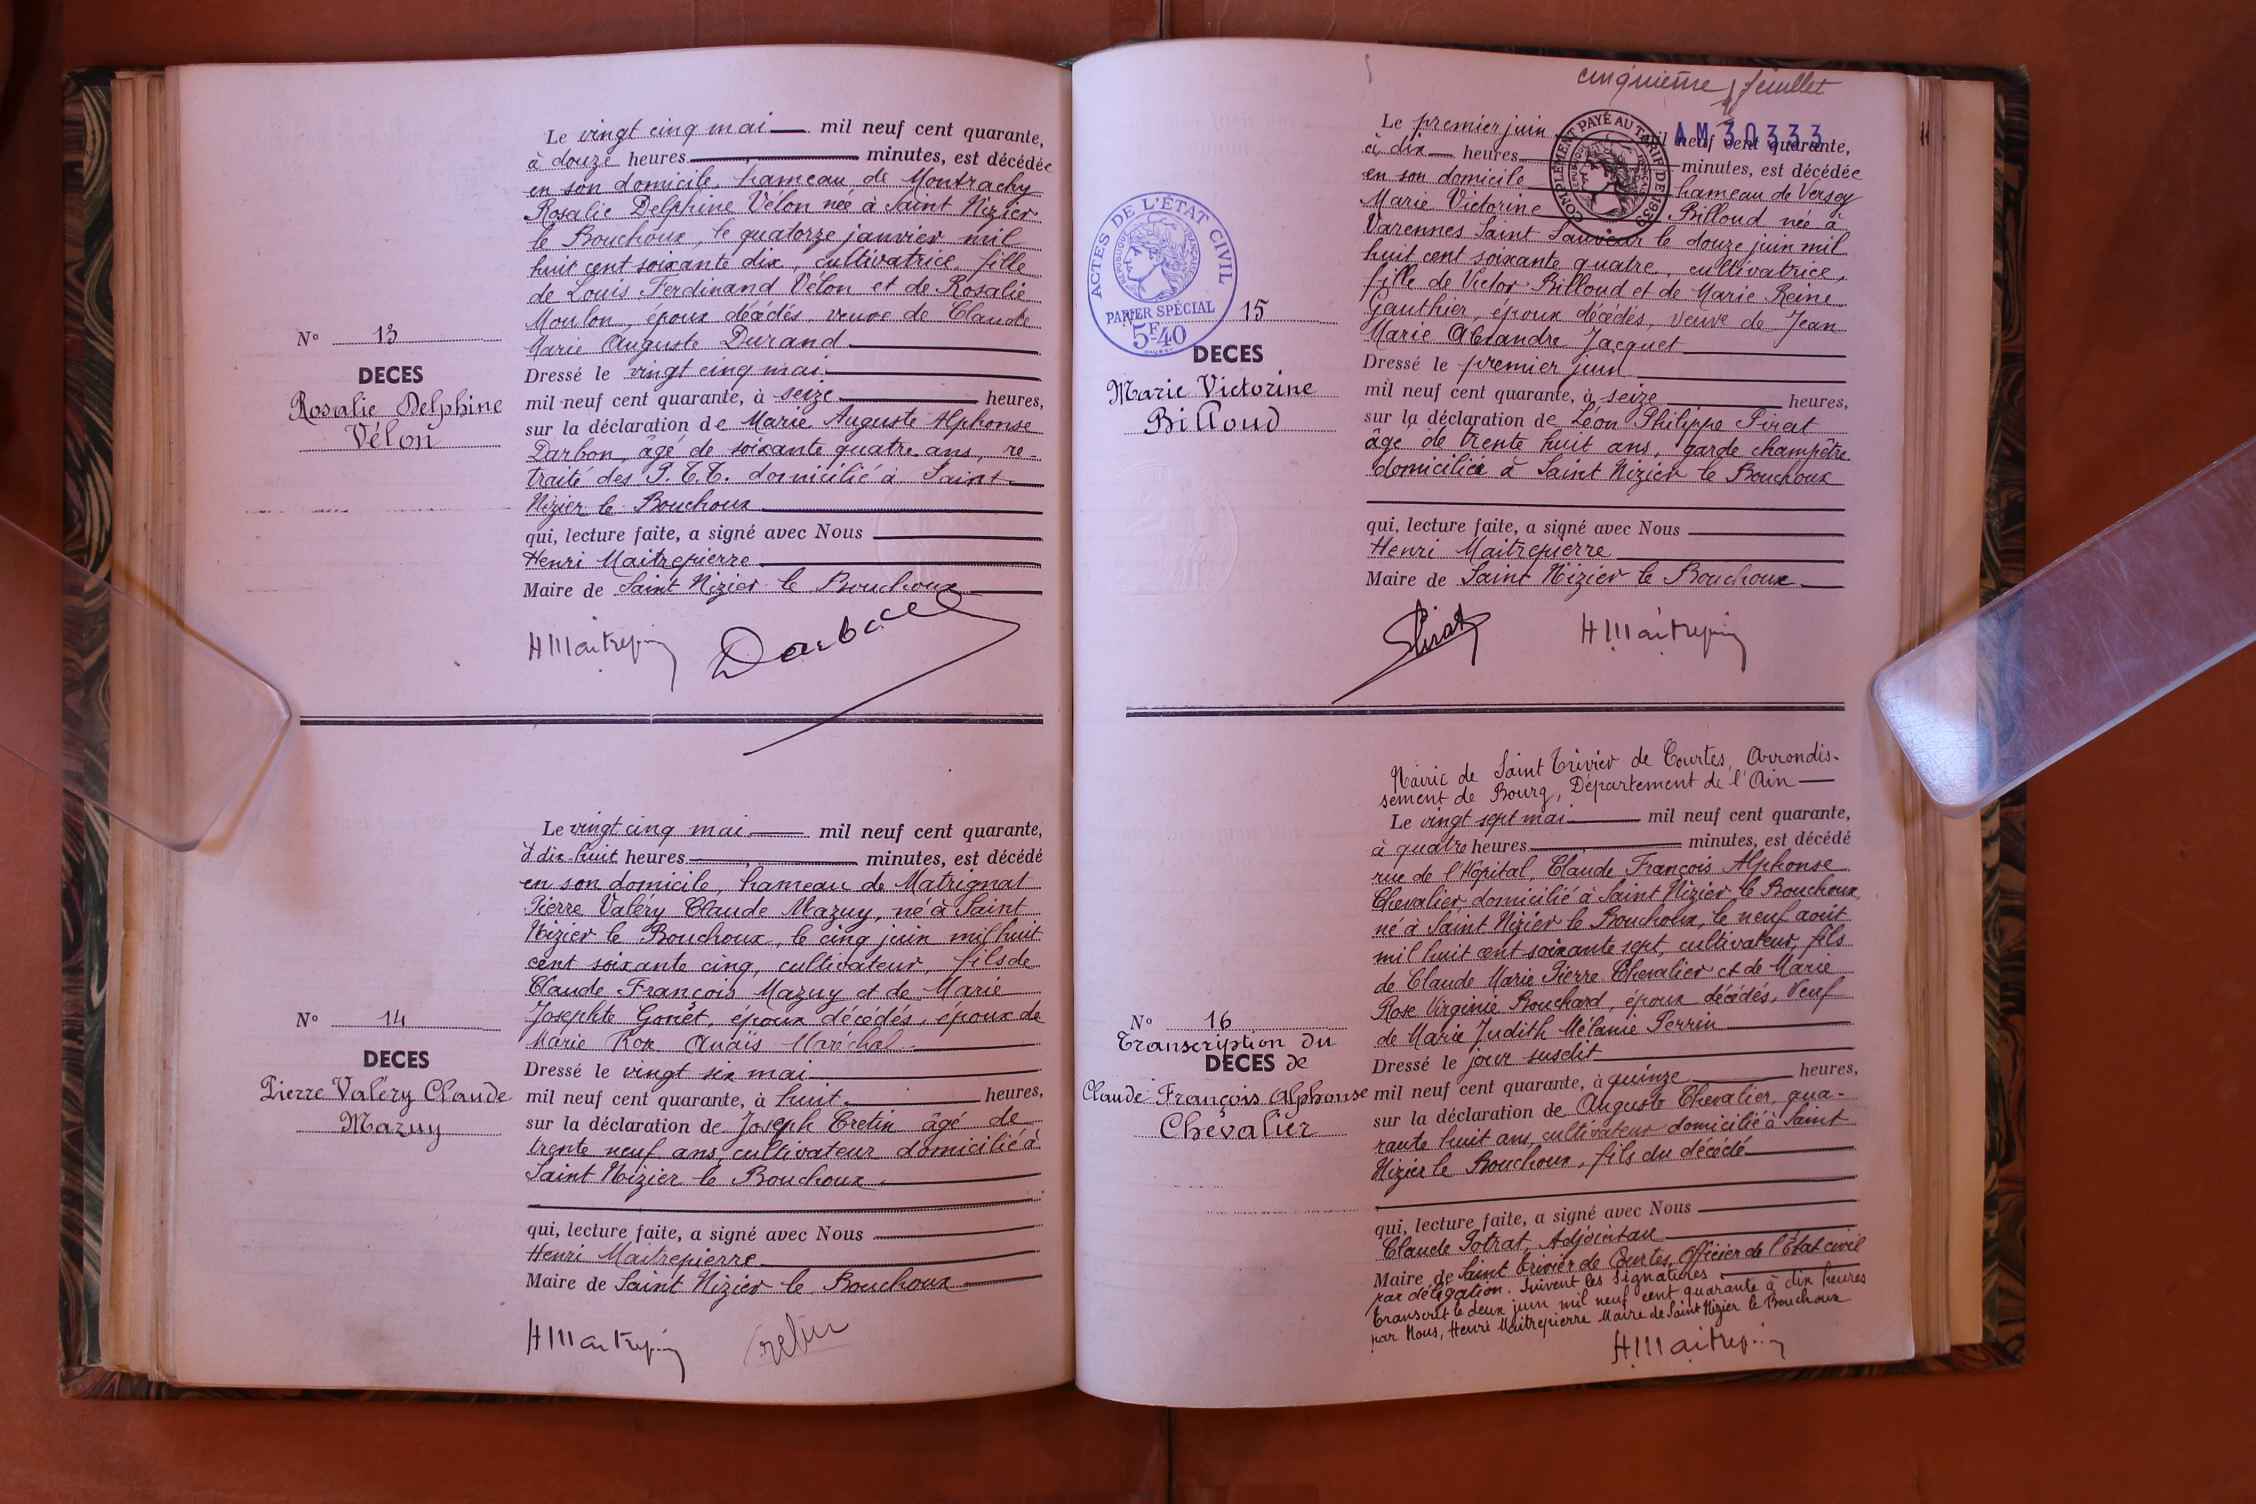 Le vingt cinq mai mil neuf cent quarante,
à douze heures minutes, est décédée
en son domicile, hameau de Montrachy
Rosalie Delphine Vélon née à Saint Nizier
le Bouchoux, le quatorze janvier mil
huit cent soixante dix, cultivatrice, fille
de Louis Ferdinand Vélon et de Rosalie
Moulon, époux décédés, veuve de Claude
Marie Auguste Durand
N° 13
DECES
Rosalie Delphine
Vélon
Dressé le vingt cinq mai
mil neuf cent quarante, à seize heures,
sur la déclaration de Marie Auguste Alphonse
Darbon, âgé de soixante quatre ans, re-
traité des P.T.T. domicilié à Saint
Nizier le Bouchoux
qui, lecture faite, a signé avec Nous
Henri Maitrepierre
Maire de Saint Nizier le Bouchoux
HMaitrepi Darbon
Le vingt cinq mai mil neuf cent quarante,
à dix huit heures minutes, est décédé
en son domicile, hameau de Matrignat
Pierre Valéry Claude Mazuy, né à Saint
Nizier le Bouchoux, le cinq juin mil huit
cent soixante cinq, cultivateur, fils de
Claude François Mazuy et de Marie
Josephte Gonet, époux décédés, époux de
Marie Anais Maréchal
N° 14
DECES
Pierre Valéry Claude
Mazuy
Dressé le vingt six mai
mil neuf cent quarante, à huit heures,
sur la déclaration de Joseph Cretin âgé de
trente neuf ans, cultivateur domicilié à
Saint Nizier le Bouchoux
qui, lecture faite, a signé avec Nous
Henri Maitrepierre
Maire de Saint Nizier le Bouchoux
HMaitrepi Cretin
cinquième feuillet
AM 30333
11
COMPLÉMENT PAYÉ AU TARIF DE 193
Le premier juin mil neuf cent quarante,
à dix heures minutes, est décédée
en son domicile hameau de Versey
Marie Victorine Billoud née à
Varennes Saint Sauveur le douze juin mil
huit cent soixante quatre, cultivatrice,
fille de Victor Billoud et de Marie Reine
Gauthier, époux décédés, veuve de Jean
Marie Alexandre Jacquet
ACTES DE L'ÉTAT CIVIL
RÉPUBLIQUE FRANÇAISE
PAPIER SPÉCIAL
5F40
N° 15
DECES
Marie Victorine
Billoud
Dressé le premier juin
mil neuf cent quarante, à seize heures,
sur la déclaration de Léon Philippe Pirat
âgé de trente huit ans, garde champêtre
domicilié à Saint Nizier le Bouchoux
qui, lecture faite, a signé avec Nous
Henri Maitrepierre
Maire de Saint Nizier le Bouchoux
Pirat HMaitrepi
Mairie de Saint Trivier de Courtes, Arrondis-
sement de Bourg, Département de l'Ain
Le vingt sept mai mil neuf cent quarante,
à quatre heures minutes, est décédé
rue de l'Hôpital, Claude François Alphonse
Chevalier, domicilié à Saint Nizier le Bouchoux,
né à Saint Nizier le Bouchoux, le neuf août
mil huit cent soixante sept, cultivateur, fils
de Claude Marie Pierre Chevalier et de Marie
Rose Virginie Bouchard, époux décédés, Veuf
de Marie Judith Mélanie Perrin
N° 16
Transcription du
DECES de
Claude François Alphonse
Chevalier
Dressé le jour susdit
mil neuf cent quarante, à quinze heures,
sur la déclaration de Auguste Chevalier, qua-
rante huit ans, cultivateur domicilié à Saint
Nizier le Bouchoux, fils du décédé
qui, lecture faite, a signé avec Nous
Claude Potrat, Adjoint au
Maire de Saint Trivier de Courtes, Officier de l'État civil
par délégation. Suivent les signatures
Transcrit le deux juin mil neuf cent quarante à dix heures
par Nous, Henri Maitrepierre Maire de Saint Nizier le Bouchoux
HMaitrepi